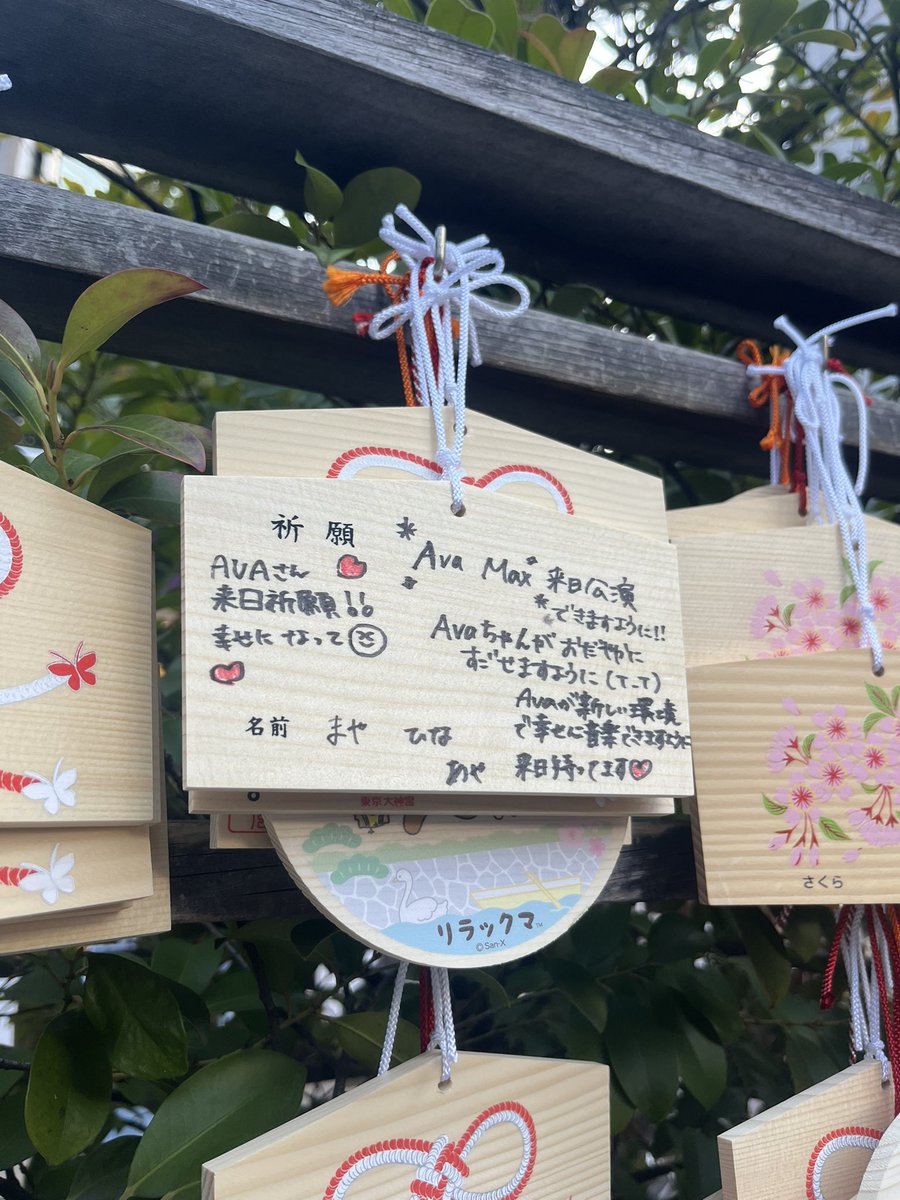 祈願
AVAさん
来日祈願!!
幸せになって
名前 まや ひな
あや
Ava Max 来日公演
できますように!!
Avaちゃんがおだやかに
すごせますように(T_T)
Avaが新しい環境
で幸せに音楽できますように
来日待ってます
東京大神宮
リラックマ™
©San-X
さくら